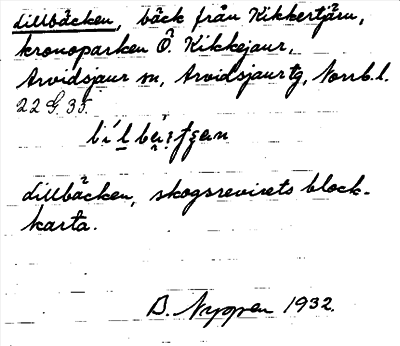 dillbäcken, bäck från Kikkertjärn,
kronoparken Ö. Kikkejaur,
Arvidsjaur sn, Arvidsjaur tg, Norrb. l.
22 G. 35.
dillbäcken, skogsrevirets block-
karta.
B. Nyppen 1932.